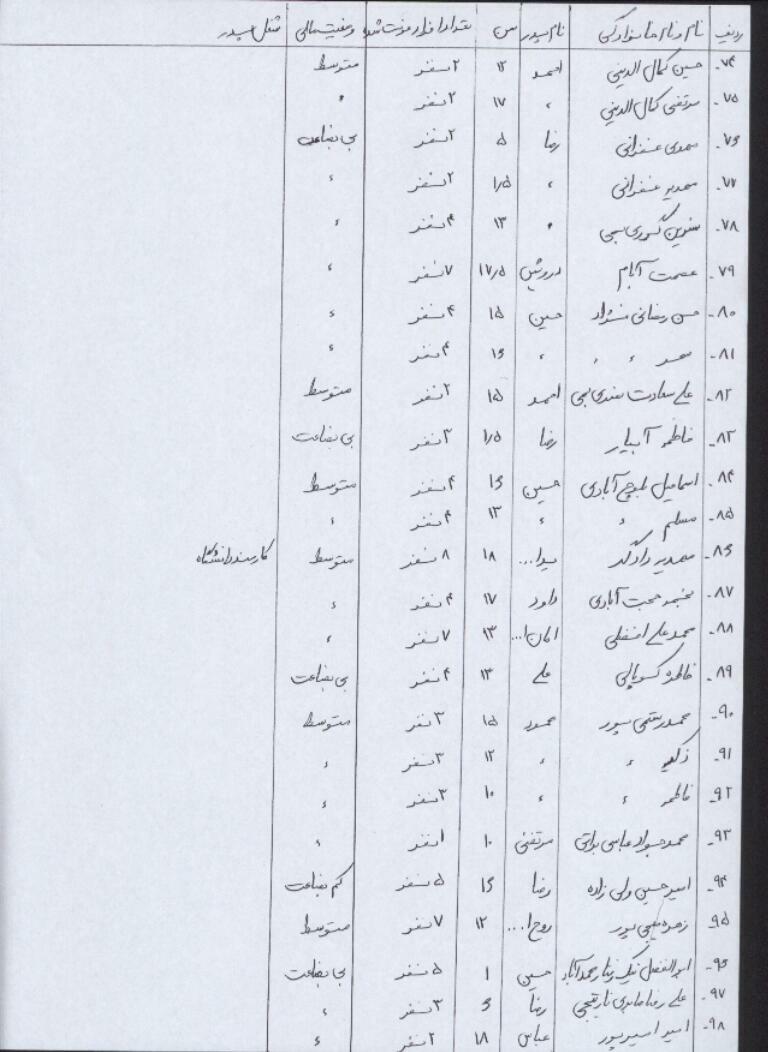 ردیف نام و نام خانوادگی نام پدر سن تعداد افراد فوت شده وضعیت مالی شغل پدر
۷۴- حسین کمال الدینی احمد ۱۲ ۲ نفر متوسط
۷۵- مرتضی کمال الدینی ، ۱۷ ۲ نفر ،
۷۶- مهدی غضنفرانی رضا ۵ ۲ نفر بی بضاعت
۷۷- مهدیه غضنفرانی ، ۱/۵ ۲ نفر ،
۷۸- ، ۱۳ ۴ نفر ،
۷۹- عصمت درویش ۱۷/۵ ۷ نفر ،
۸۰- حسن رضائی نژاد حسین ۱۵ ۴ نفر ،
۸۱- ، ، ، ۱۶ ۴ نفر ،
۸۲- علی سعادت احمد ۱۵ ۲ نفر متوسط
۸۳- فاطمه آبیار رضا ۱/۵ ۳ نفر بی بضاعت
۸۴- اسماعیل حسین ۱۶ ۴ نفر متوسط
۸۵- مسلم ، ، ۱۳ ۴ نفر ،
۸۶- مهدیه دادگر یدا... ۱۸ ۸ نفر متوسط کارمند دانشگاه
۸۷- نجمه محبت آبادی داود ۱۷ ۴ نفر ،
۸۸- محمد علی افضلی امان ا... ۱۳ ۷ نفر ،
۸۹- فاطمه علی ۱۳ ۴ نفر بی بضاعت
۹۰- محمد پور محمود ۱۵ ۳ نفر متوسط
۹۱- زکیه ، ، ۱۲ ۳ نفر ،
۹۲- فاطمه ، ، ۱۰ ۳ نفر ،
۹۳- محمد جواد عباسی براتی مرتضی ۱۰ ۱ نفر ،
۹۴- امیر حسین ولی زاده رضا ۱۶ ۵ نفر کم بضاعت
۹۵- زهره پور روح ا... ۱۲ ۷ نفر متوسط
۹۶- ابوالفضل حسین ۱ ۵ نفر بی بضاعت
۹۷- علی رضا رضا ۶ ۳ نفر ،
۹۸- امیر امیرپور عباس ۱۸ ۲ نفر ،